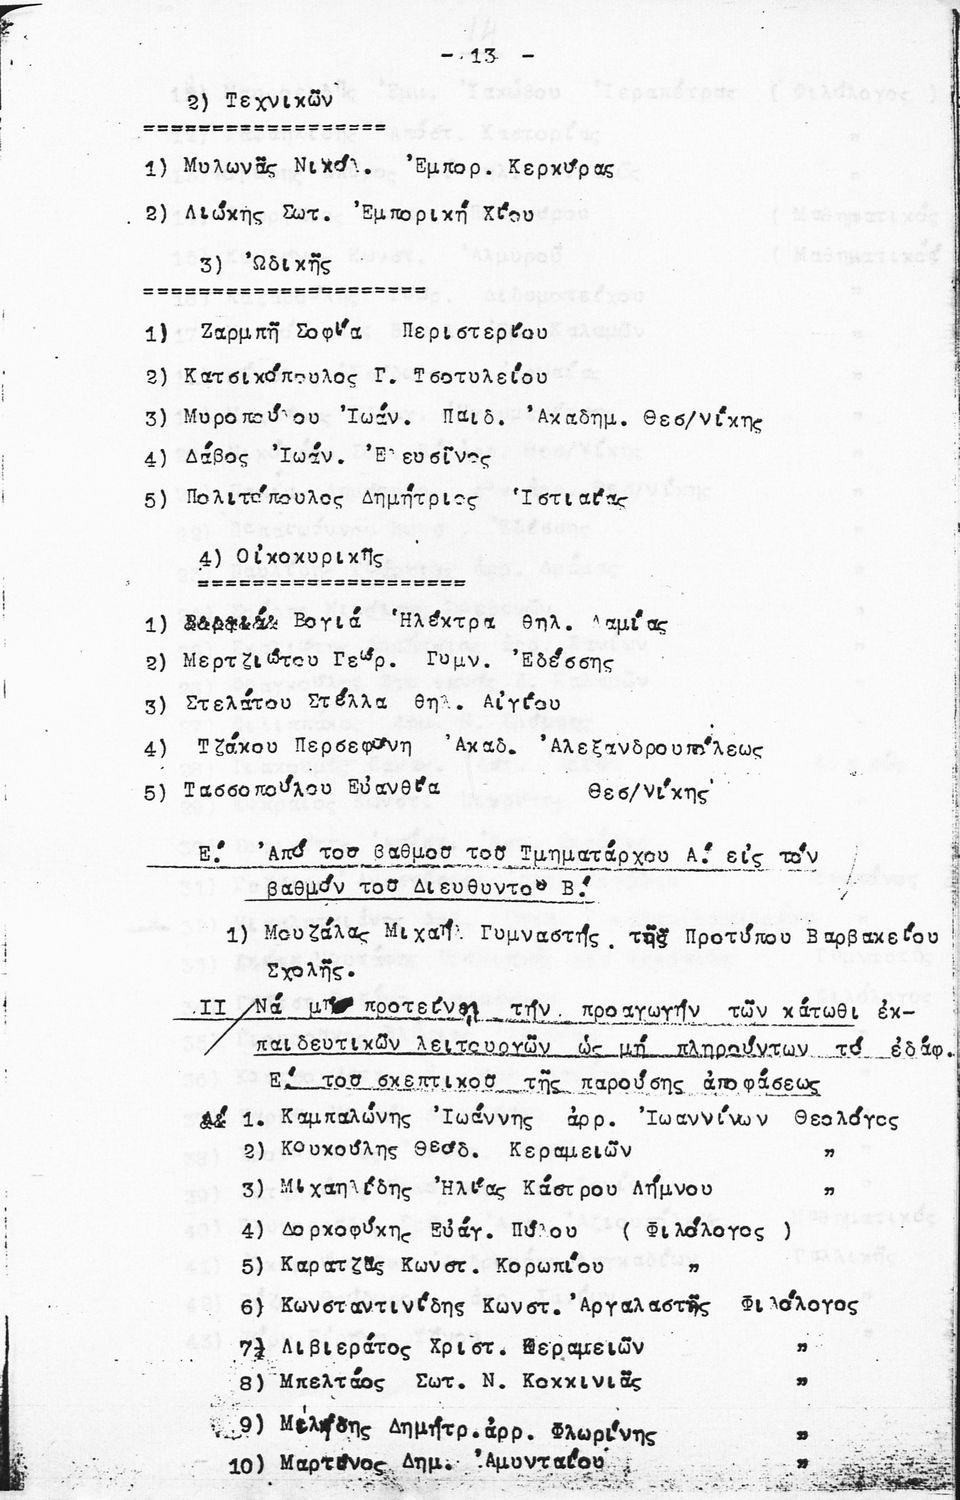 - 13 -
2) Τεχνικῶν
==================
1) Μυλωνᾶς Νικόλ. Ἐμπορ. Κερκύρας
2) Λιώκης Σωτ. Ἐμπορική Χίου
3) Ὠδικῆς
=====================
1) Ζαρμπῆ Σοφία Περιστερίου
2) Κατσικόπουλος Γ. Τσοτυλείου
3) Μυροπούλου Ἰωάν. Παιδ. Ἀκαδημ. Θεσ/νίκης
4) Δάβος Ἰωάν. Ἐλευσῖνος
5) Πολιτόπουλος Δημήτριος Ἱστιαίας
4) Οἰκοκυρικῆς
====================
1) Βογιά Ἠλέκτρα θηλ. Λαμίας
2) Μερτζιώτου Γεώρ. Γυμν. Ἐδέσσης
3) Στελάτου Στέλλα θηλ. Αἰγίου
4) Τζάκου Περσεφόνη Ἀκαδ. Ἀλεξανδρουπόλεως
5) Τασσοπούλου Εὐανθία Θεσ/νίκης
Ε.' Ἀπό τοῦ βαθμοῦ τοῦ Τμηματάρχου Α.' εἰς τόν
βαθμόν τοῦ Διευθυντοῦ Β.'
1) Μουζάλας Μιχαήλ Γυμναστής τῆς Προτύπου Βαρβακείου
Σχολῆς.
ΙΙ Νά μή προτείνῃ τήν προαγωγήν τῶν κάτωθι ἐκ-
παιδευτικῶν λειτουργῶν ὡς μή πληρούντων τό ἐδάφ.
Ε.' τοῦ σκεπτικοῦ τῆς παρούσης ἀποφάσεως
1. Καμπαλώνης Ἰωάννης ἀρρ. Ἰωαννίνων Θεολόγος
2) Κουκούλης Θεόδ. Κεραμειῶν "
3) Μιχαηλίδης Ἠλίας Κάστρου Λήμνου "
4) Δορκοφύκης Εὐάγ. Πύλου ( Φιλόλογος )
5) Καρατζᾶς Κωνστ. Κορωπίου "
6) Κωνσταντινίδης Κωνστ. Ἀργαλαστῆς Φιλόλογος
7) Λιβιεράτος Χριστ. Κεραμειῶν "
8) Μπελτάος Σωτ. Ν. Κοκκινιᾶς "
9) Δημήτρ. ἀρρ. Φλωρίνης "
10) Μαρτῖνος Δημ. Ἀμυνταίου "